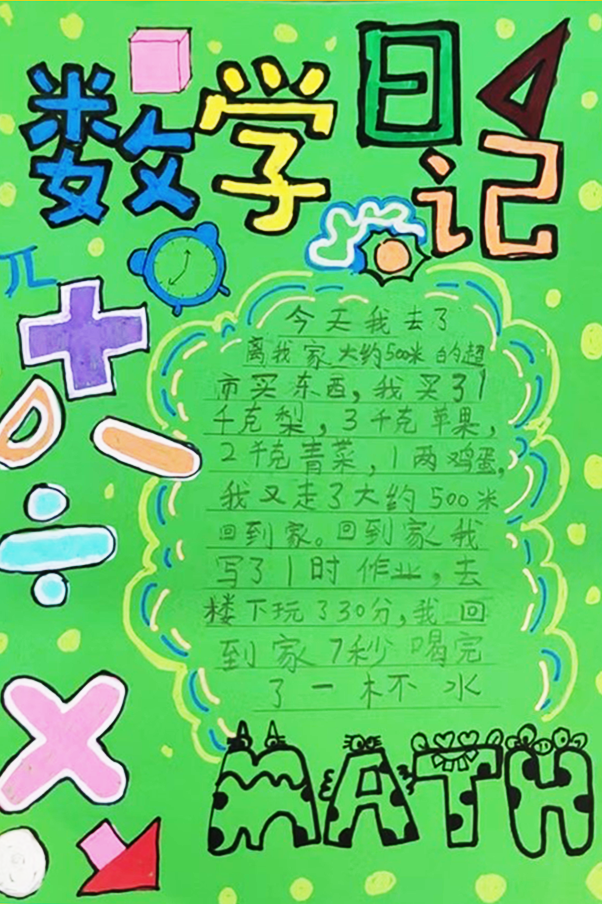 数学日记
π
今天我去了
离我家大约500米的超
市买东西，我买了1
千克梨，3千克苹果，
2千克青菜，1两鸡蛋，
我又走了大约500米
回到家。回到家我
写了1时作业，去
楼下玩了30分，我回
到家7秒喝完
了一杯水
MATH